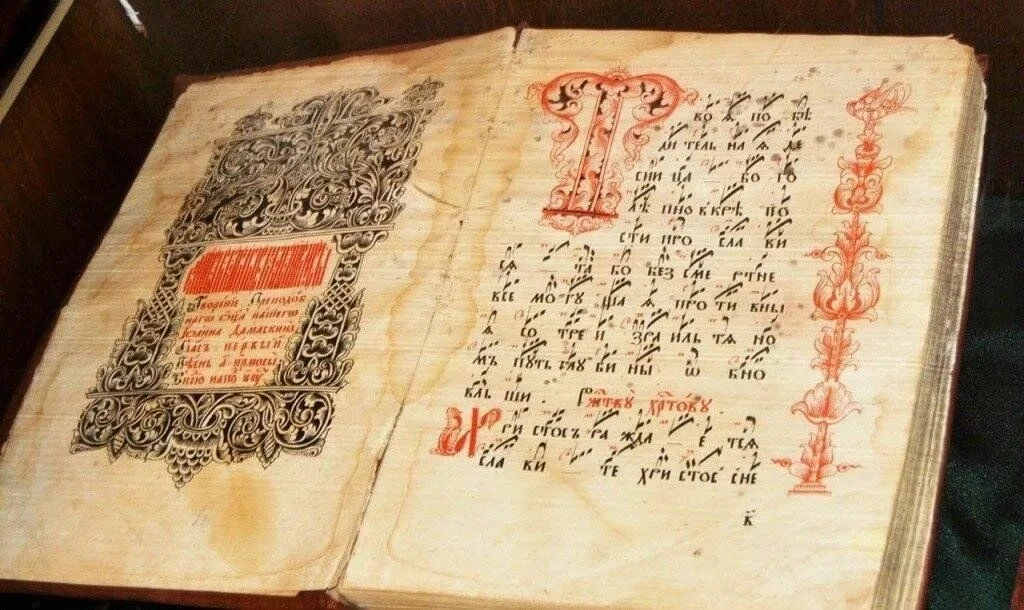 Творение Преподоб
наго ѡц҃а нашегѡ
Іоанна Дамаскина
Гласъ первый
Пѣснь а҃ ірмосы
Т во ѧ по бѣ
ди тель на ѧ де
сни ца бо го
лѣ пно в крѣ по
сти про сла ви
сѧ та бо без сме ртне
все мо гу ща ѧ про ти вны
ѧ со тре и зра иль тѧ но
мъ путь глу би ны ѡ бно
вль ши . Рж҃тву хр҃тову
Хри стосъ ра жда е тсѧ
сла ви те хри стос с не
к҃